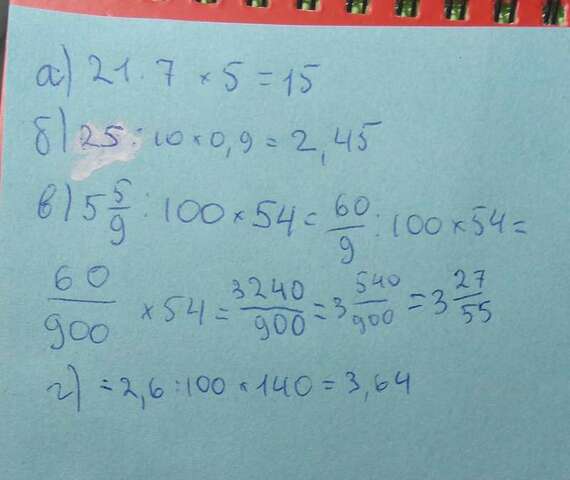 а) 21 . 7 × 5 = 15
б) 25 : 10 × 0,9 = 2,45
в) 5 5/9 : 100 × 54 = 60/9 : 100 × 54 =
60/900 × 54 = 3240/900 = 3 540/900 = 3 27/55
г) = 2,6 : 100 × 140 = 3,64